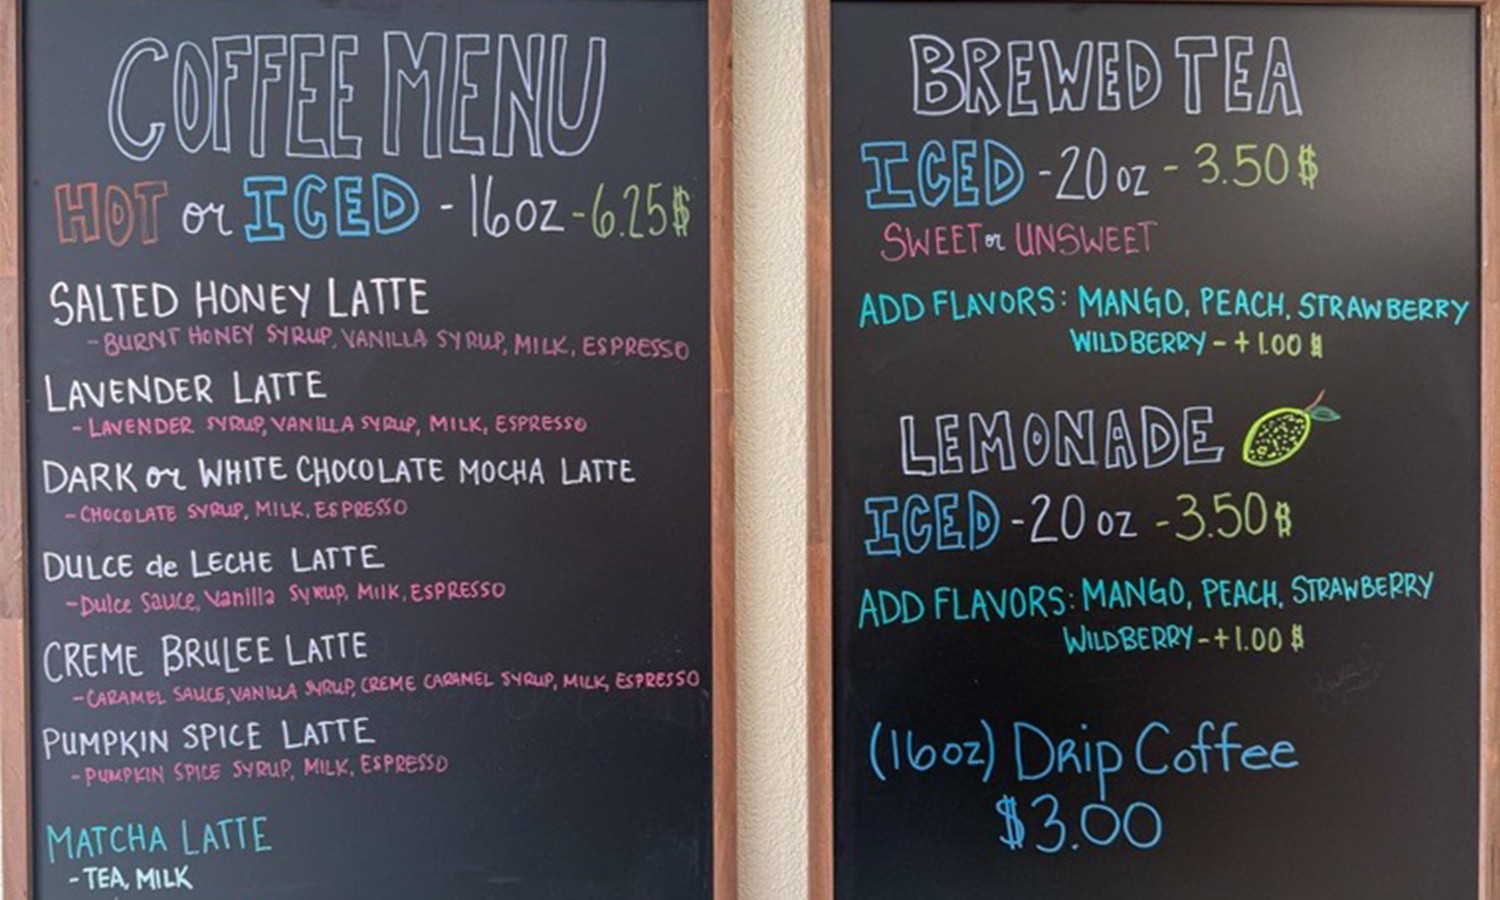 COFFEE MENU
HOT or ICED - 16oz - 6.25$
SALTED HONEY LATTE
- BURNT HONEY SYRUP, VANILLA SYRUP, MILK, ESPRESSO
LAVENDER LATTE
- LAVENDER SYRUP, VANILLA SYRUP, MILK, ESPRESSO
DARK or WHITE CHOCOLATE MOCHA LATTE
- CHOCOLATE SYRUP, MILK, ESPRESSO
DULCE de LECHE LATTE
- Dulce Sauce, Vanilla Syrup, Milk, ESPRESSO
CREME BRULEE LATTE
- CARAMEL SAUCE, VANILLA SYRUP, CREME CARAMEL SYRUP, MILK, ESPRESSO
PUMPKIN SPICE LATTE
- PUMPKIN SPICE SYRUP, MILK, ESPRESSO
MATCHA LATTE
- TEA, MILK
BREWED TEA
ICED - 20 oz - 3.50$
SWEET or UNSWEET
ADD FLAVORS: MANGO, PEACH, STRAWBERRY
WILDBERRY - + 1.00 $
LEMONADE
ICED - 20 oz - 3.50$
ADD FLAVORS: MANGO, PEACH, STRAWBERRY
WILDBERRY - + 1.00 $
(16oz) Drip Coffee
$3.00